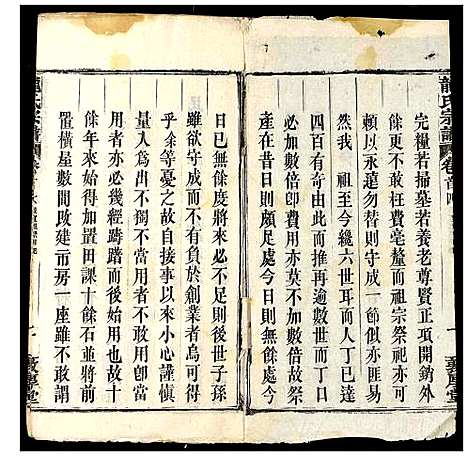 龍氏宗譜
卷首四
完糧若掃墓若養老尊賢正項開銷外
餘更不敢枉費亳釐而祖宗祭祀亦可
賴以永遠勿替則守成一節似亦匪易
然我 祖至今纔六世耳而人丁已達
四百有奇由此而推再過數世人丁勢
必加數倍用亦莫不加數倍故祭
產在昔日則頗足處今日則無餘處今
敦厚堂
日已無餘度將來必不足則後世子孫
雖欲守成而不有負於創業者烏可得
乎余等憂之故自接事以來小心謹慎
量入為出不獨不當用者不用卽當
用者亦必幾經躊躇而後始用故
餘年內又添置田課十餘石並將前
置橫屋數間改建一市房一座雖不敢謂